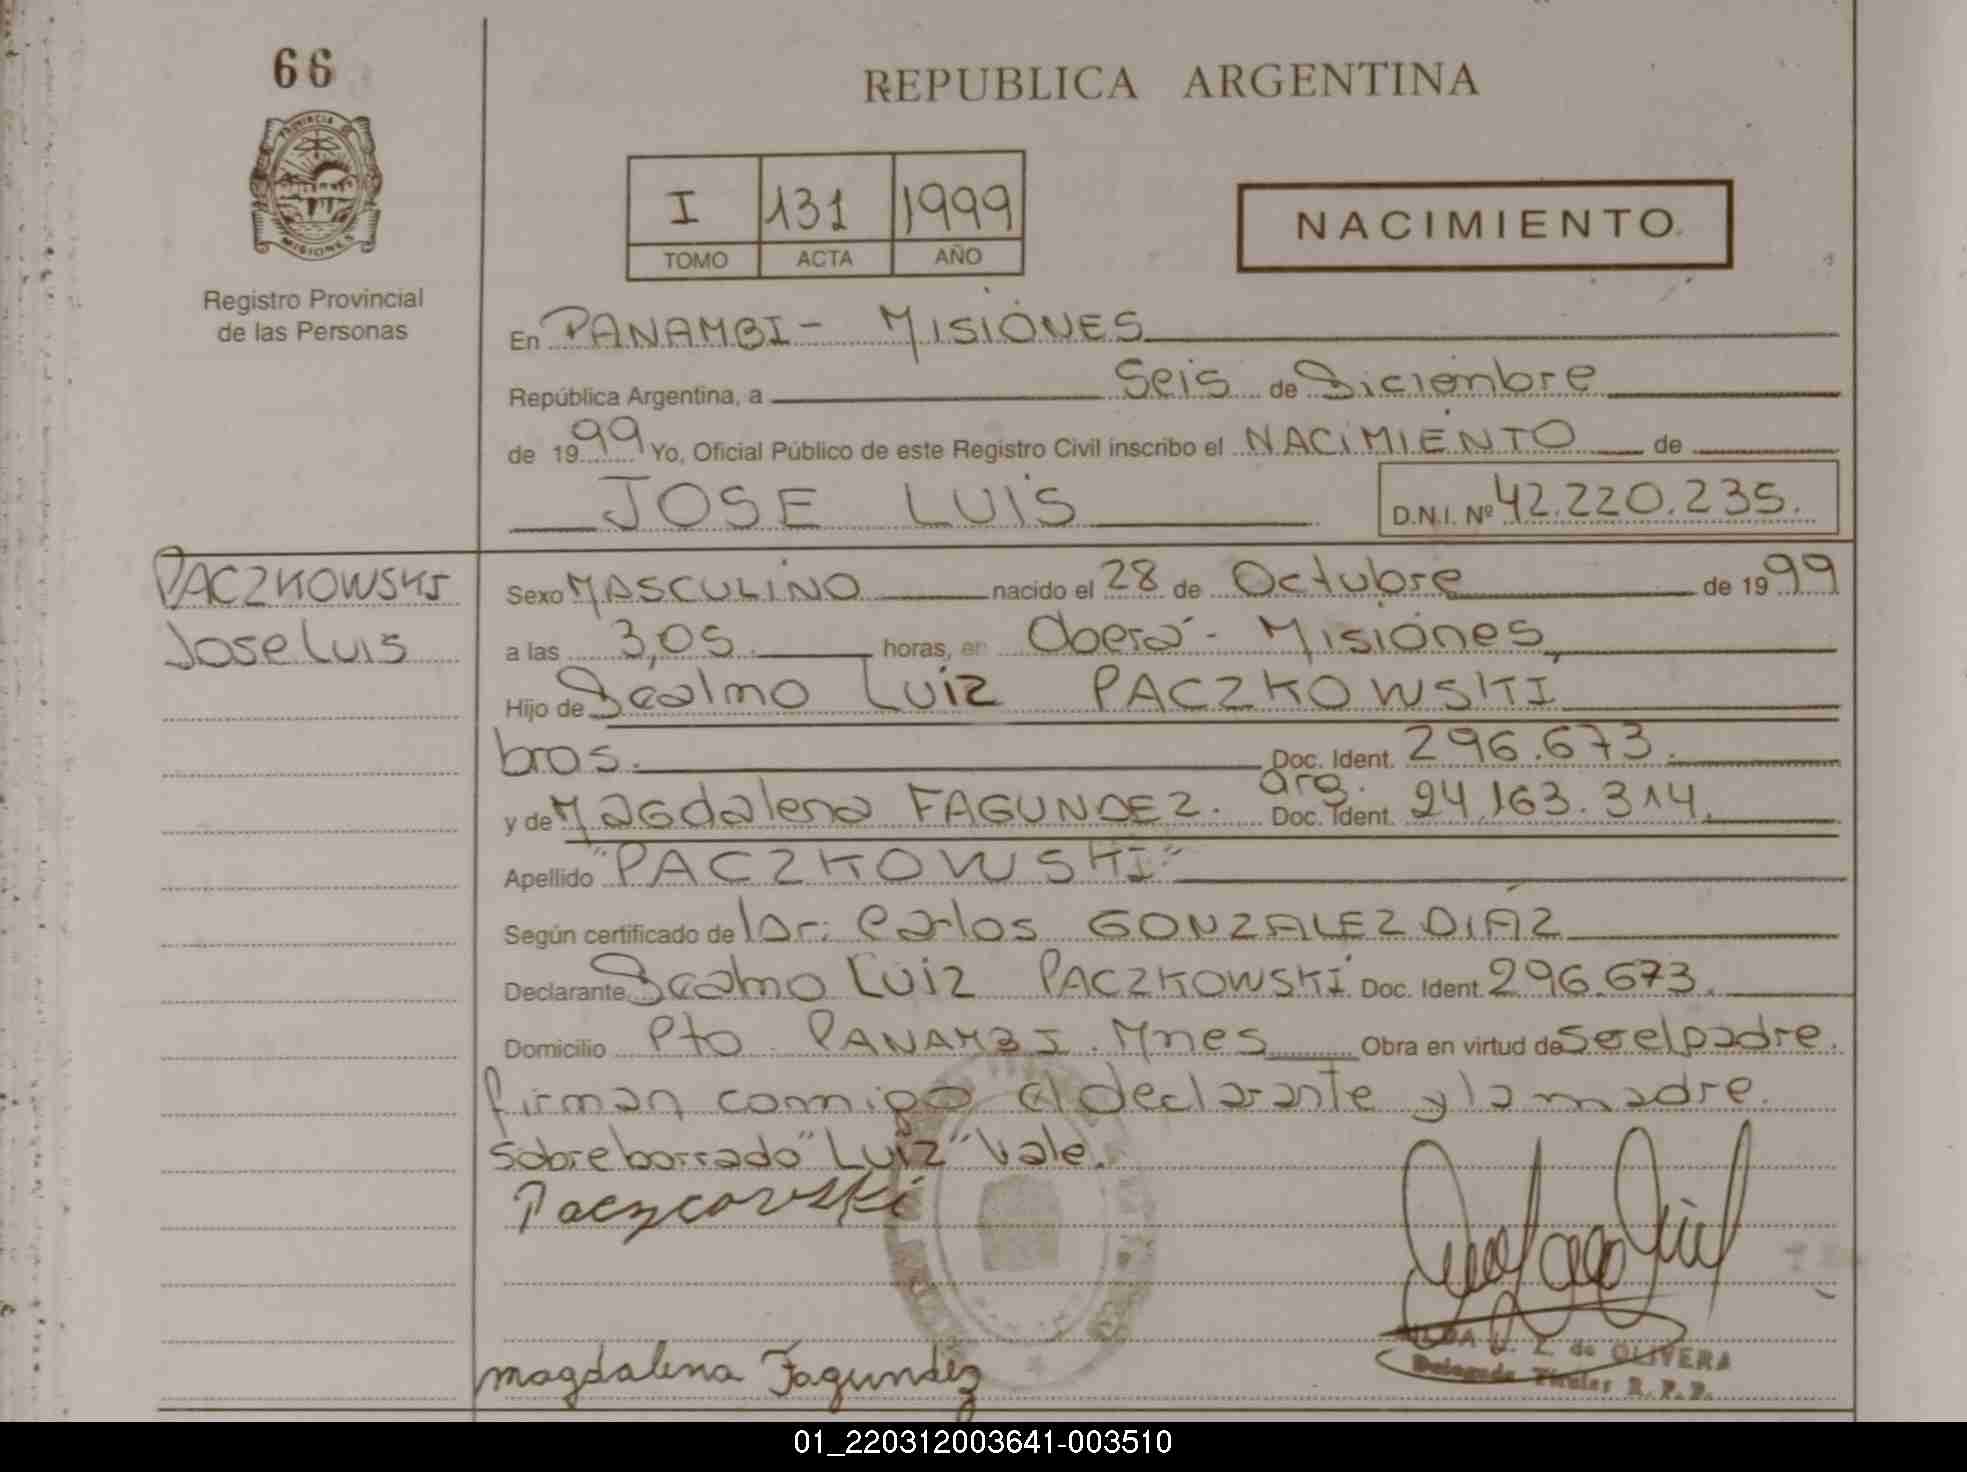 66
REPUBLICA ARGENTINA
PROVINCIA DE
MISIONES
Registro Provincial
de las Personas
I 131 1999
TOMO ACTA AÑO
NACIMIENTO
En PANAMBI - MISIONES
República Argentina, a Seis de Diciembre
de 1999 Yo, Oficial Público de este Registro Civil inscribo el NACIMIENTO de
JOSE LUIS D.N.I. Nº 42.220.235.
PACZKOWSKI
Jose Luis
Sexo MASCULINO nacido el 28 de Octubre de 1999
a las 3,05 horas, en Oberá - Misiones,
Hijo de Dealmo Luiz PACZKOWSKI
bras. Doc. Ident. 296.673.
y de Magdalena FAGUNDEZ. arg. Doc. Ident. 24.163.314.
Apellido "PACZKOWSKI"
Según certificado de Dr: Carlos GONZALEZ DIAZ
Declarante Dealmo Luiz PACZKOWSKI Doc. Ident. 296.673.
Domicilio Pto PANAMBI. Mnes Obra en virtud de ser el padre.
firman conmigo el declarante y la madre.
sobre borrado "Luiz" Vale.
Paczcovski
magdalena Fagundez
de OLIVERA
Delegada Titular R. P. P.
01_220312003641-003510